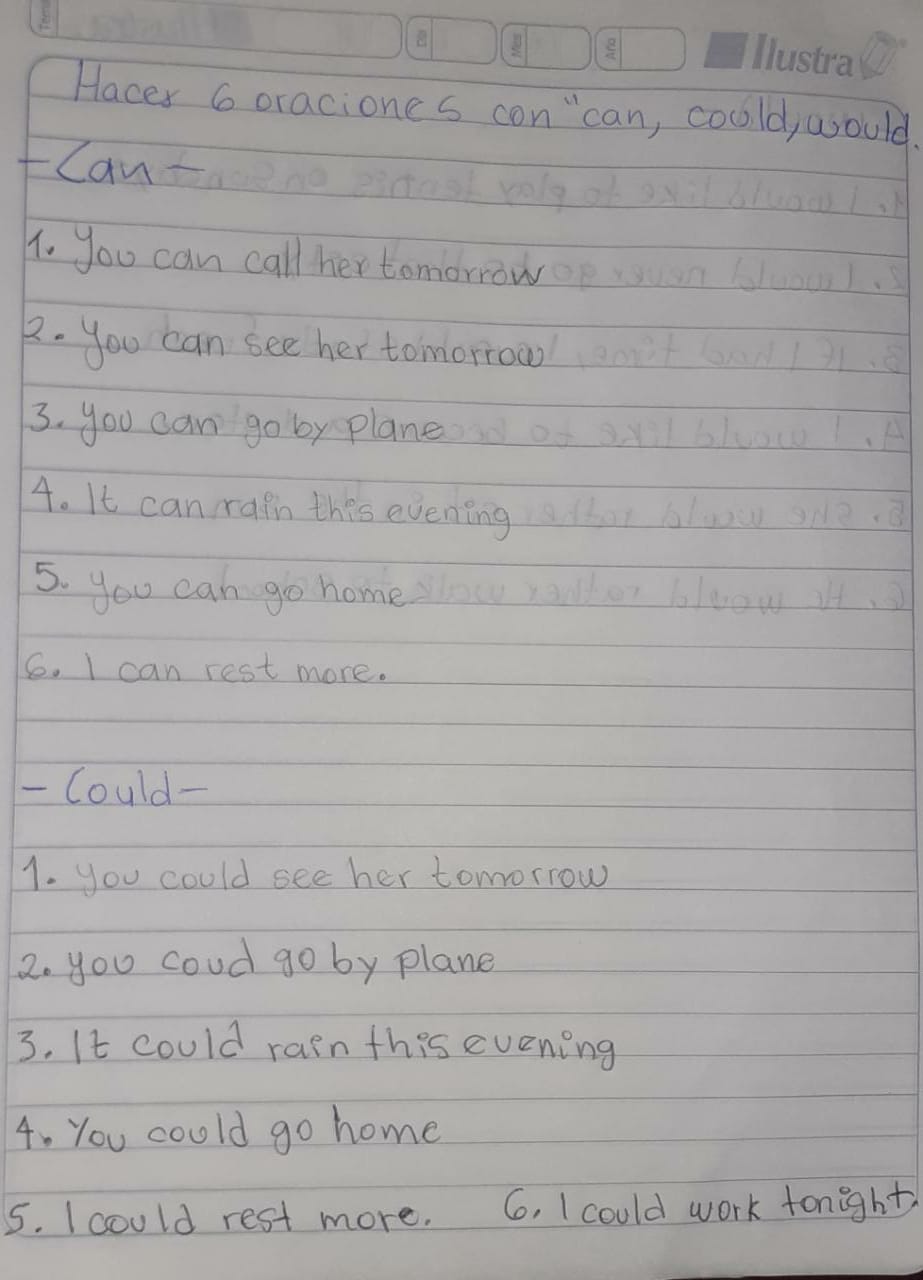 Tema
Día
Mes
Año
Ilustra
Hacer 6 oraciones con "can, could, would.
- Can -
1. You can call her tomorrow
2. You can see her tomorrow
3. you can go by plane
4. It can rain this evening
5. you can go home
6. I can rest more.
- Could -
1. you could see her tomorrow
2. you coud go by plane
3. It could rain this evening
4. You could go home
5. I could rest more. 6. I could work tonight.